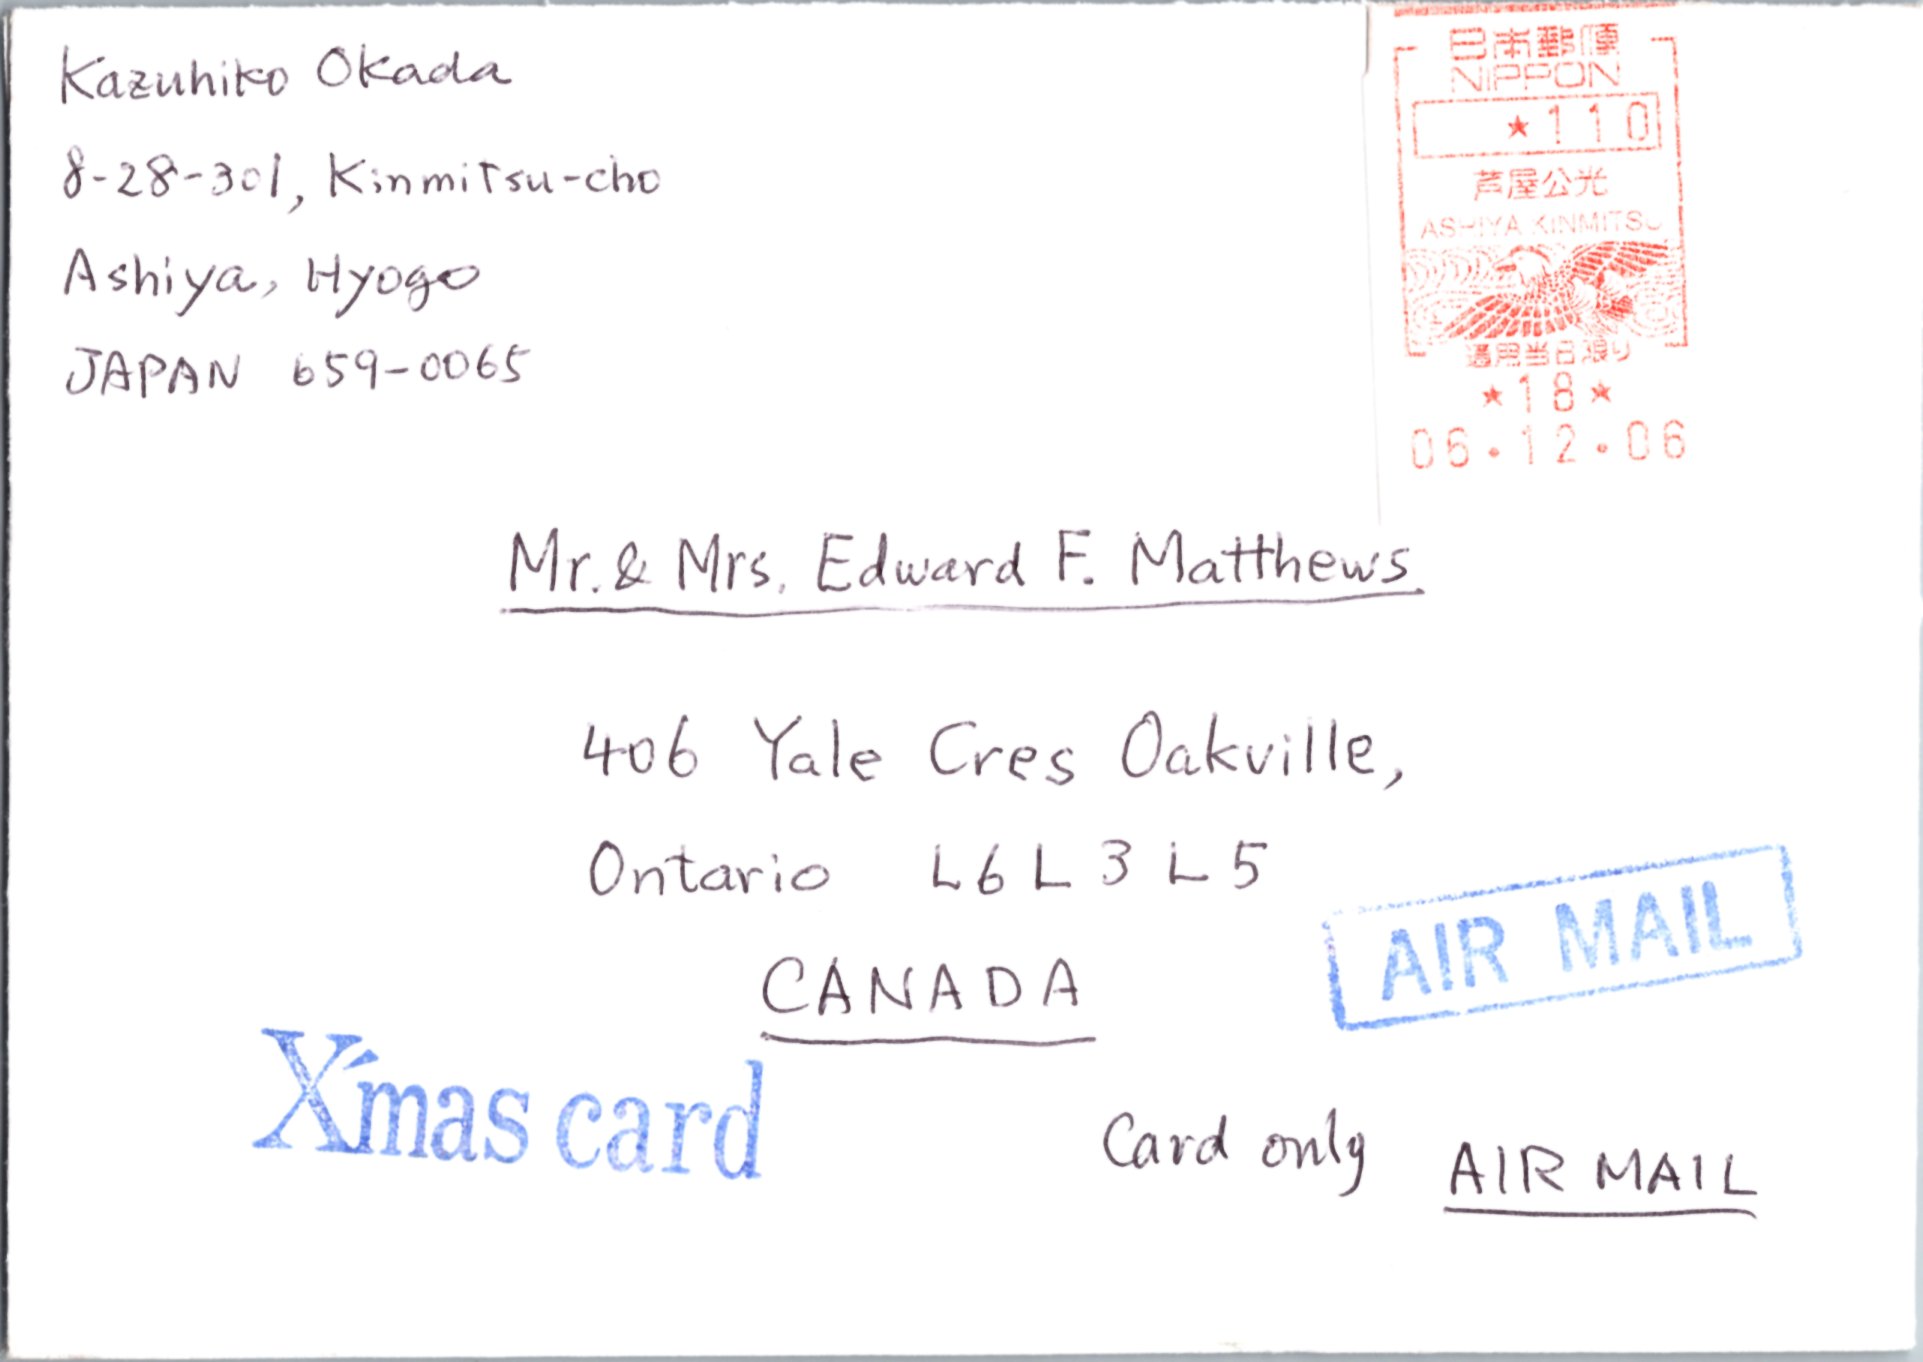 Kazuhiko Okada
8-28-301, Kinmitsu-cho
Ashiya, Hyogo
JAPAN 659-0065
日本郵便
NIPPON
★110
芦屋公光
ASHIYA KINMITSU
適用当日限り
★18★
06.12.06
Mr. & Mrs. Edward F. Matthews
406 Yale Cres Oakville,
Ontario L6L 3L5
CANADA
AIR MAIL
X'mas card
Card only AIR MAIL